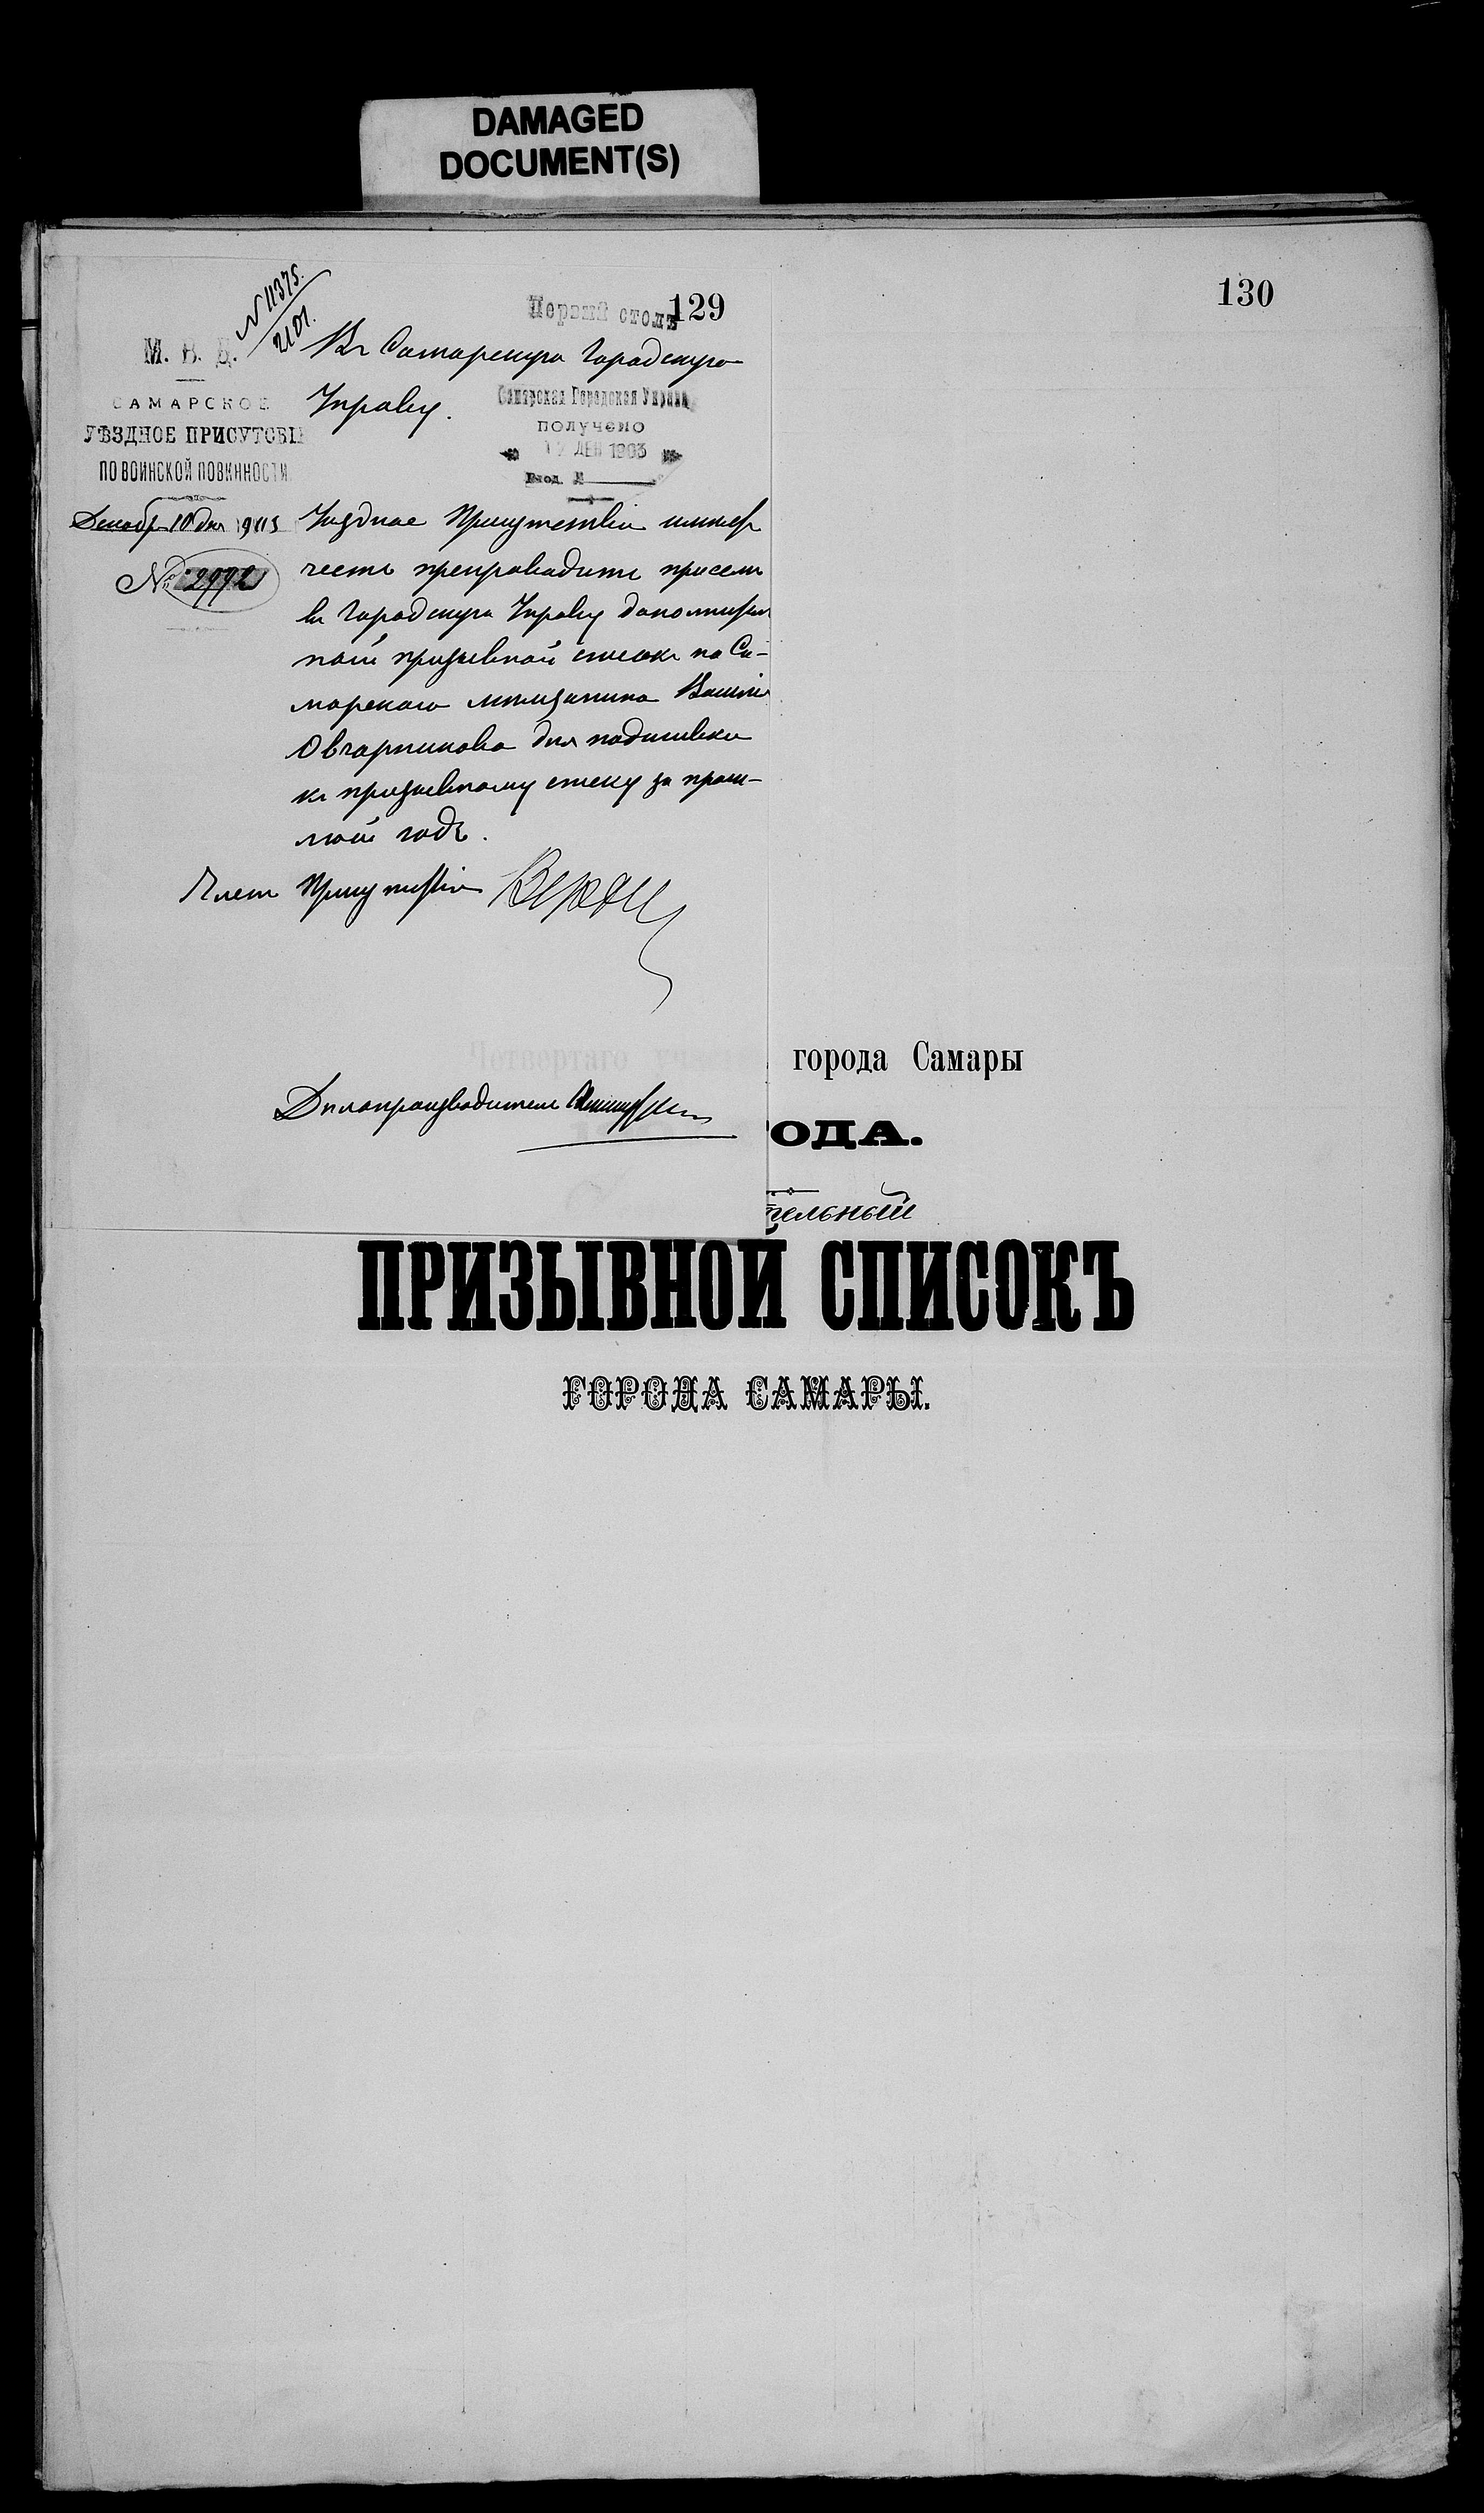 DAMAGED
DOCUMENT(S)
130
Первый столъ 129
N 11375.
2101.
М. В. Д.
САМАРСКОЕ
УѢЗДНОЕ ПРИСУТСВІ
ПО ВОИНСКОЙ ПОВИННОСТИ
Декабр 10 дня 1903
№ 2992
Въ Самарскую Городскую
Управу.
Самарская Городская Управа
получено
12 ДЕК 1903
Вход. №
Уѣздное Присутствіе имѣетъ
честь препроводить при семъ
въ Городскую Управу дополнитель
ной призывной списокъ на Са-
марскаго мѣщанина Васил
Овчарникова для подшивки
къ призывному списку за прош-
лый годъ.
Членъ Присутствія
Четвертаго участ города Самары
Дѣлопроизводитель
ОДА.
тельный
ПРИЗЫВНОЙ СПИСОКЪ
ГОРОДА САМАРЫ.